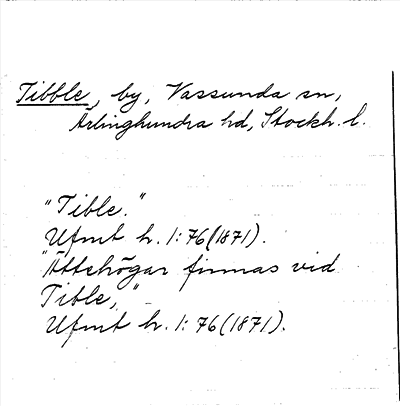 Tibble, by, Vassunda sn,
Ärlinghundra hd, Stockh. l.
"Tible."
Ufmt h. 1:76 (1871).
"Ättehögar finnas vid
Tible,"
Ufmt h. 1:76 (1871).